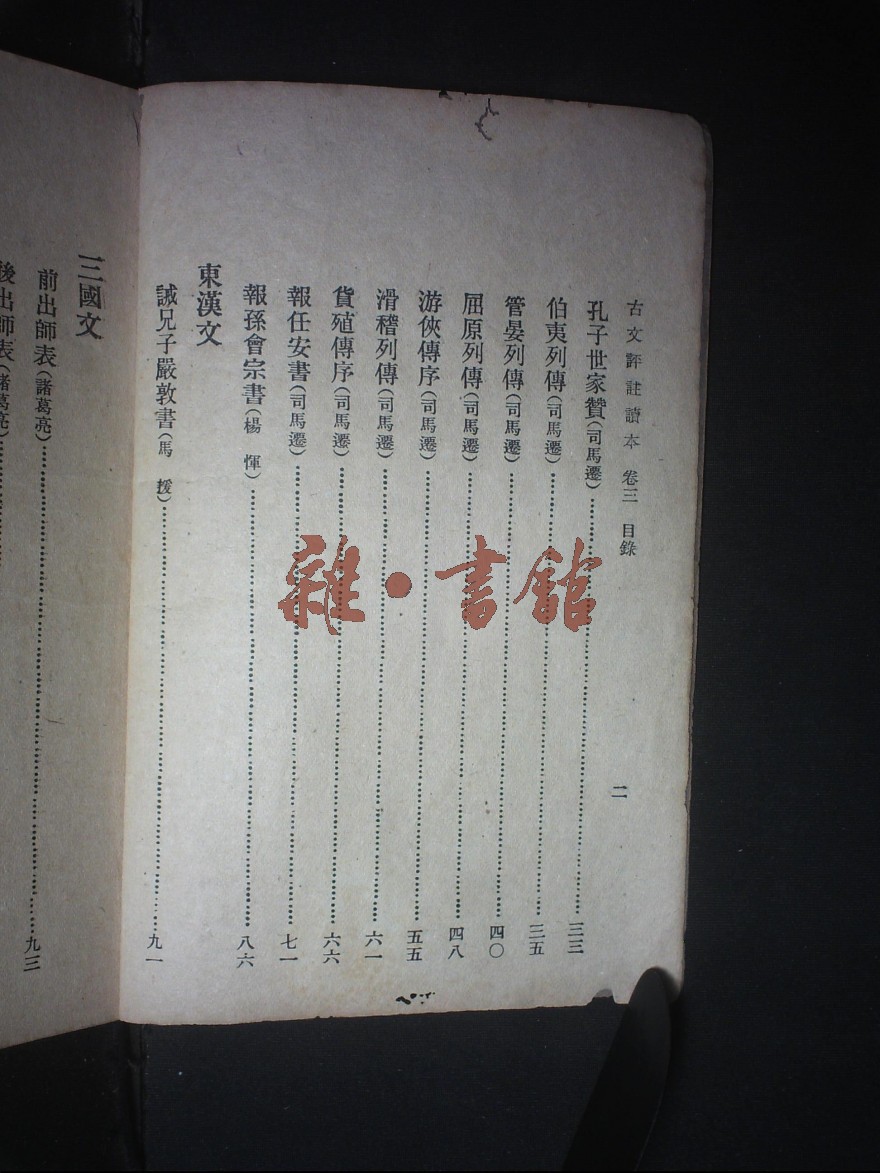 古文評註讀本 卷三 目錄 二
孔子世家贊(司馬遷)……三三
伯夷列傳(司馬遷)……三五
管晏列傳(司馬遷)……四〇
屈原列傳(司馬遷)……四八
游俠傳序(司馬遷)……五五
滑稽列傳(司馬遷)……六一
貨殖傳序(司馬遷)……六六
報任安書(司馬遷)……七一
報孫會宗書(楊惲)……八六
東漢文
誡兄子嚴敦書(馬援)……九一
三國文
前出師表(諸葛亮)……九三
後出師表(諸葛亮)……
雜·書館